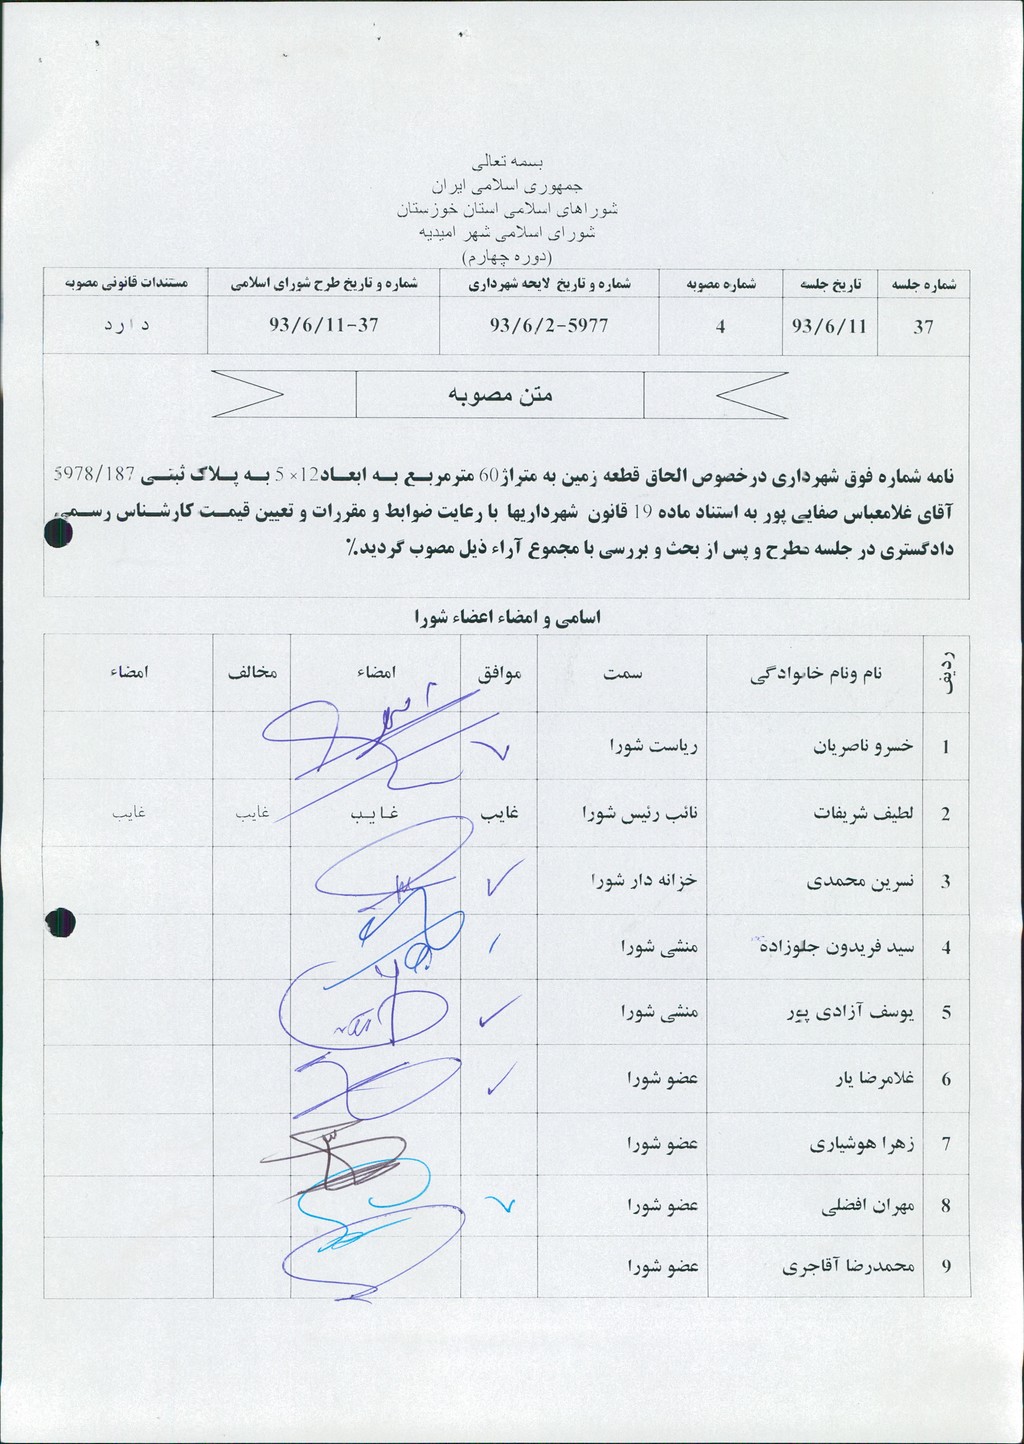 بسمه تعالی
جمهوری اسلامی ایران
شوراهای اسلامی استان خوزستان
شورای اسلامی شهر امیدیه
(دوره چهارم)
شماره جلسه تاریخ جلسه شماره مصوبه شماره و تاریخ لایحه شهرداری شماره و تاریخ طرح شورای اسلامی مستندات قانونی مصوبه
37 93/6/11 4 93/6/2-5977 93/6/11-37 دارد
متن مصوبه
نامه شماره فوق شهرداری درخصوص الحاق قطعه زمین به متراژ60 مترمربع به ابعاد12× 5 به پلاک ثبتی 5978/187
آقای غلامعباس صفایی پور به استناد ماده 19 قانون شهرداریها با رعایت ضوابط و مقررات و تعیین قیمت کارشناس رسمی
دادگستری در جلسه مطرح و پس از بحث و بررسی با مجموع آراء ذیل مصوب گردید.٪
اسامی و امضاء اعضاء شورا
ردیف نام ونام خانوادگی سمت موافق امضاء مخالف امضاء
1 خسرو ناصریان ریاست شورا
2 لطیف شریفات نائب رئیس شورا غایب غایب غایب غایب
3 نسرین محمدی خزانه دار شورا
4 سید فریدون جلوزاده منشی شورا
5 یوسف آزادی پور منشی شورا
6 غلامرضا یار عضو شورا
7 زهرا هوشیاری عضو شورا
8 مهران افضلی عضو شورا
9 محمدرضا آقاجری عضو شورا